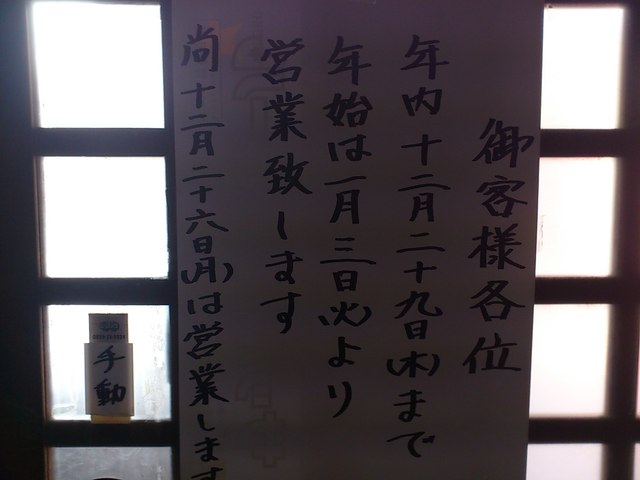 御客様各位
年内十二月二十九日(木)まで
年始は一月三日(火)より
営業致します
尚十二月二十六日(月)は営業します
手動